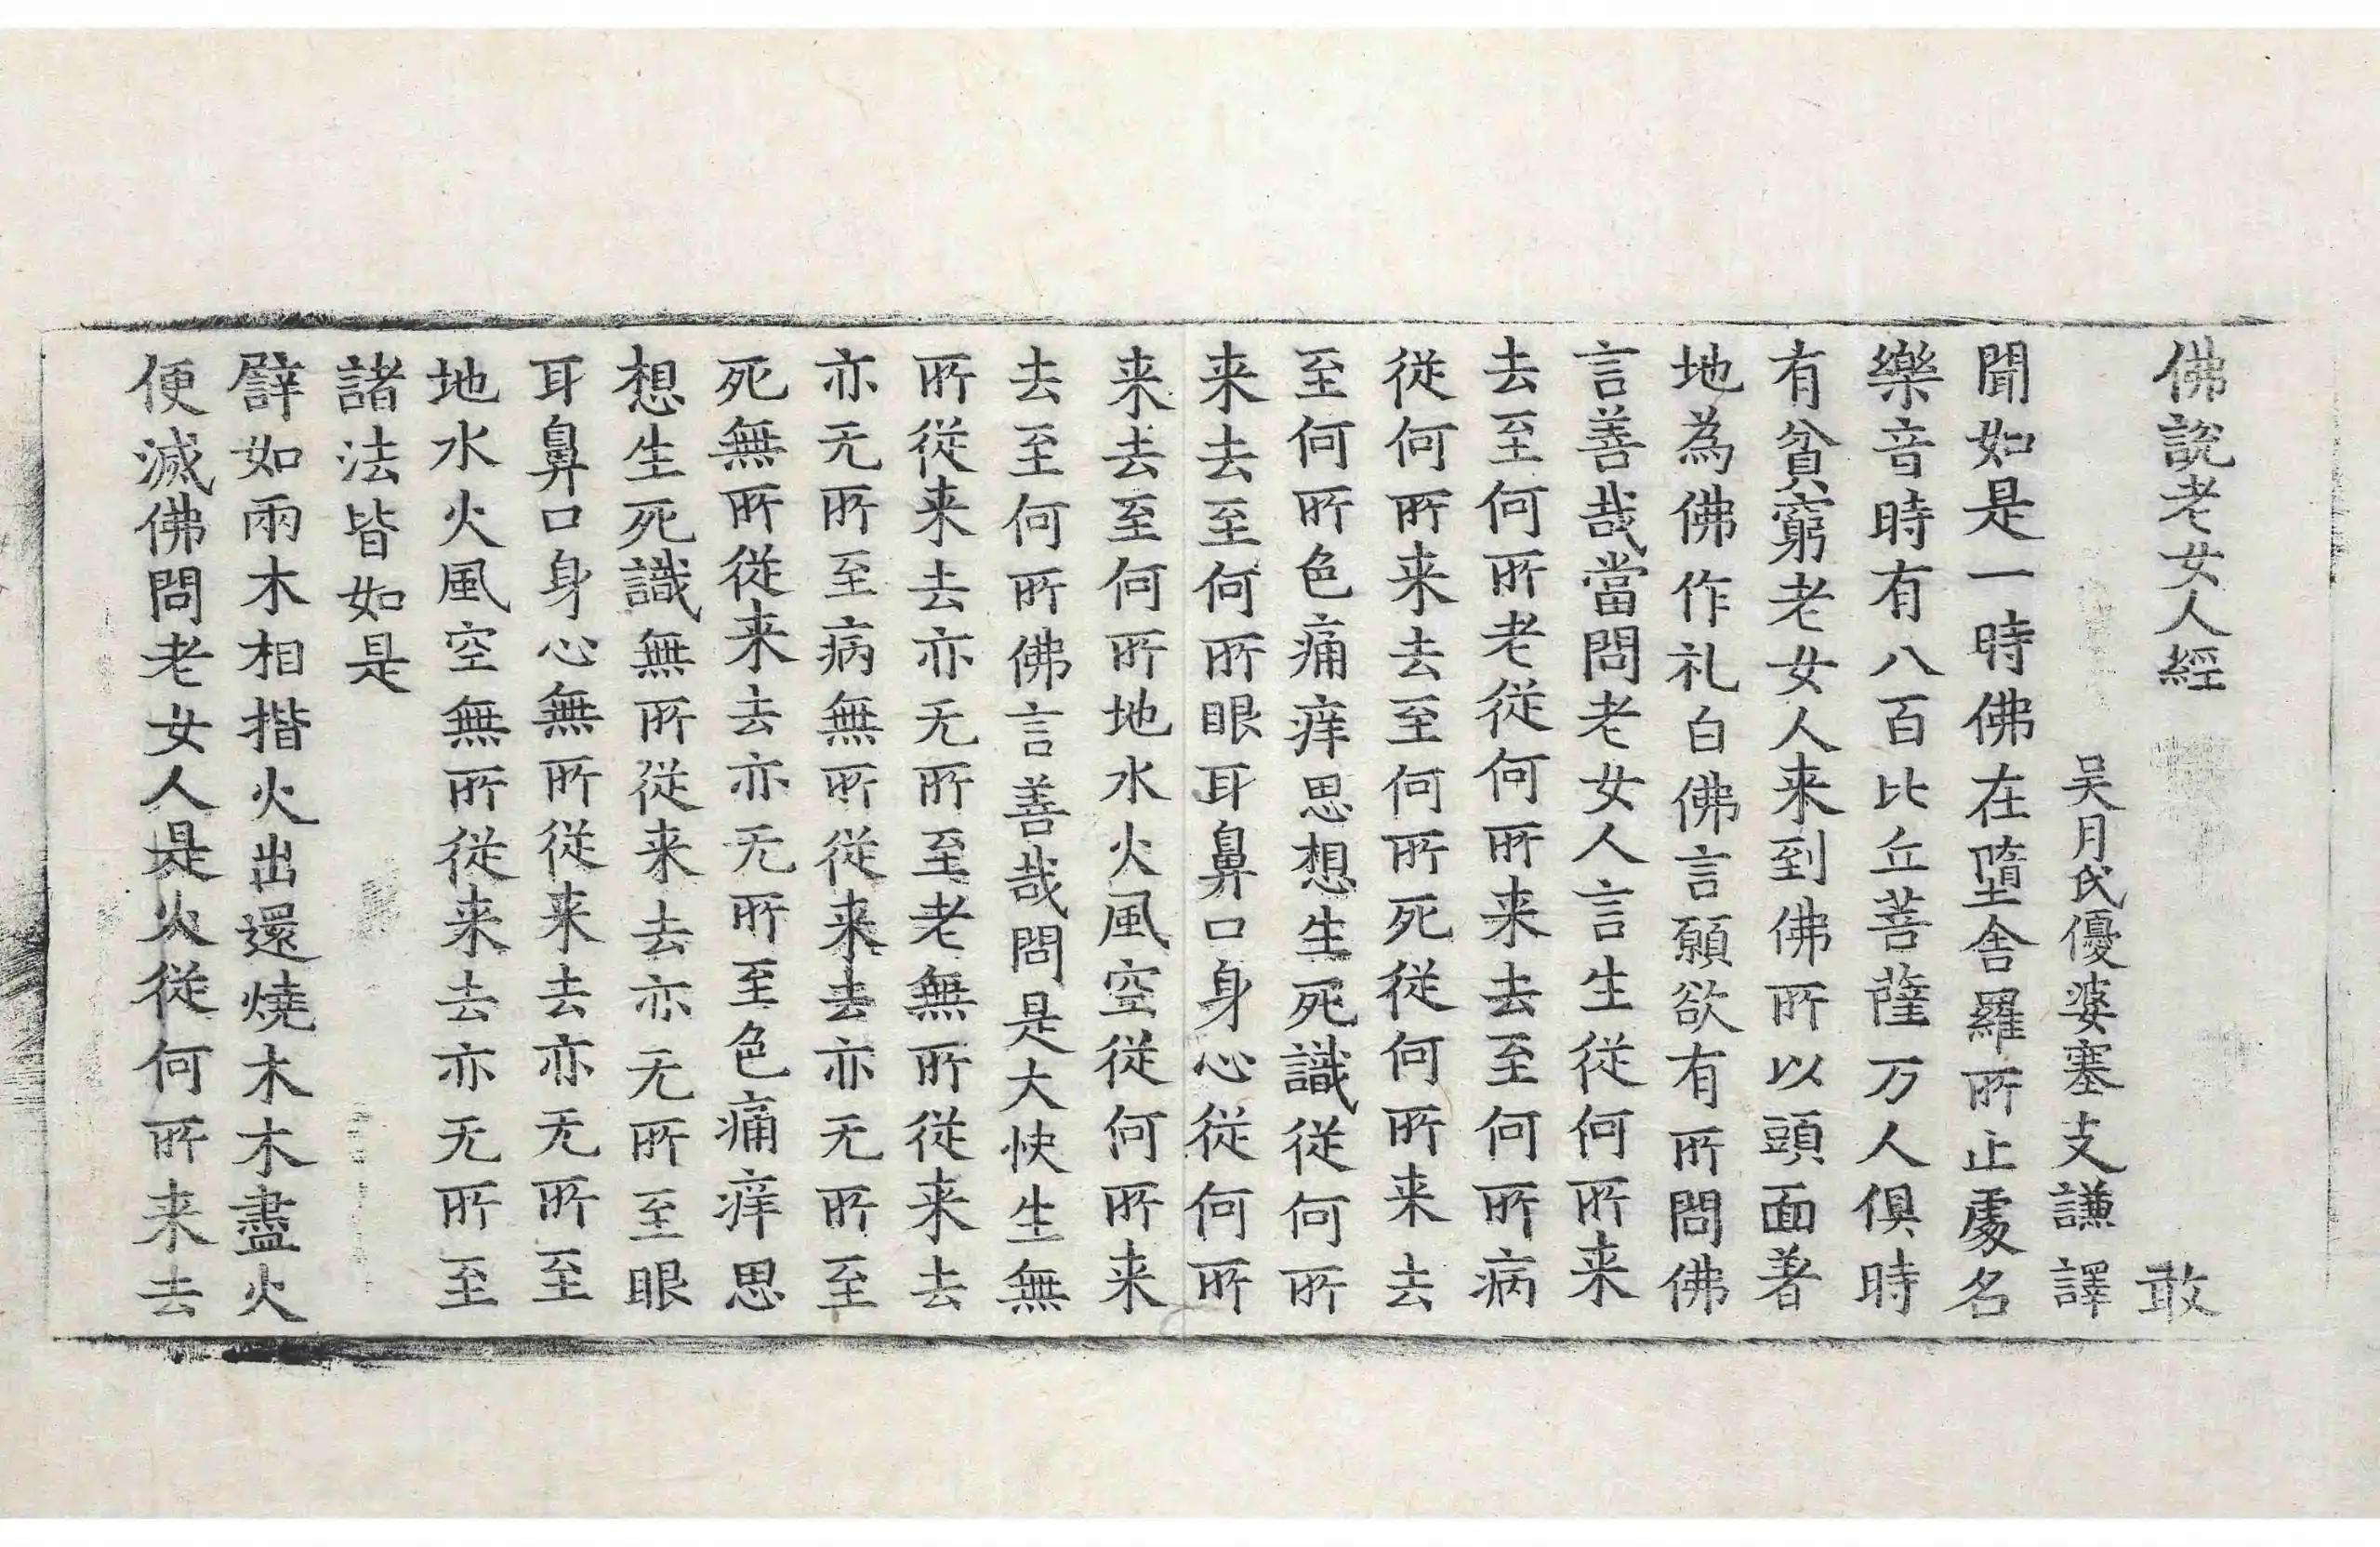 佛說老女人經 敢
吴月氏優婆塞支謙譯
聞如是一時佛在墮舍羅所止處名
樂音時有八百比丘菩薩万人俱時
有貧窮老女人来到佛所以頭面著
地為佛作礼白佛言願欲有所問佛
言善哉當問老女人言生從何所来
去至何所老從何所来去至何所病
從何所来去至何所死從何所来去
至何所色痛痒思想生死識從何所
来去至何所眼耳鼻口身心從何所
来去至何所地水火風空從何所来
去至何所佛言善哉問是大快生無
所從来去亦无所至老無所從来去
亦无所至病無所從来去亦无所至
死無所從来去亦无所至色痛痒思
想生死識無所從来去亦无所至眼
耳鼻口身心無所從来去亦无所至
地水火風空無所從来去亦无所至
諸法皆如是
譬如兩木相揩火出還燒木木盡火
便滅佛問老女人是火從何所来去